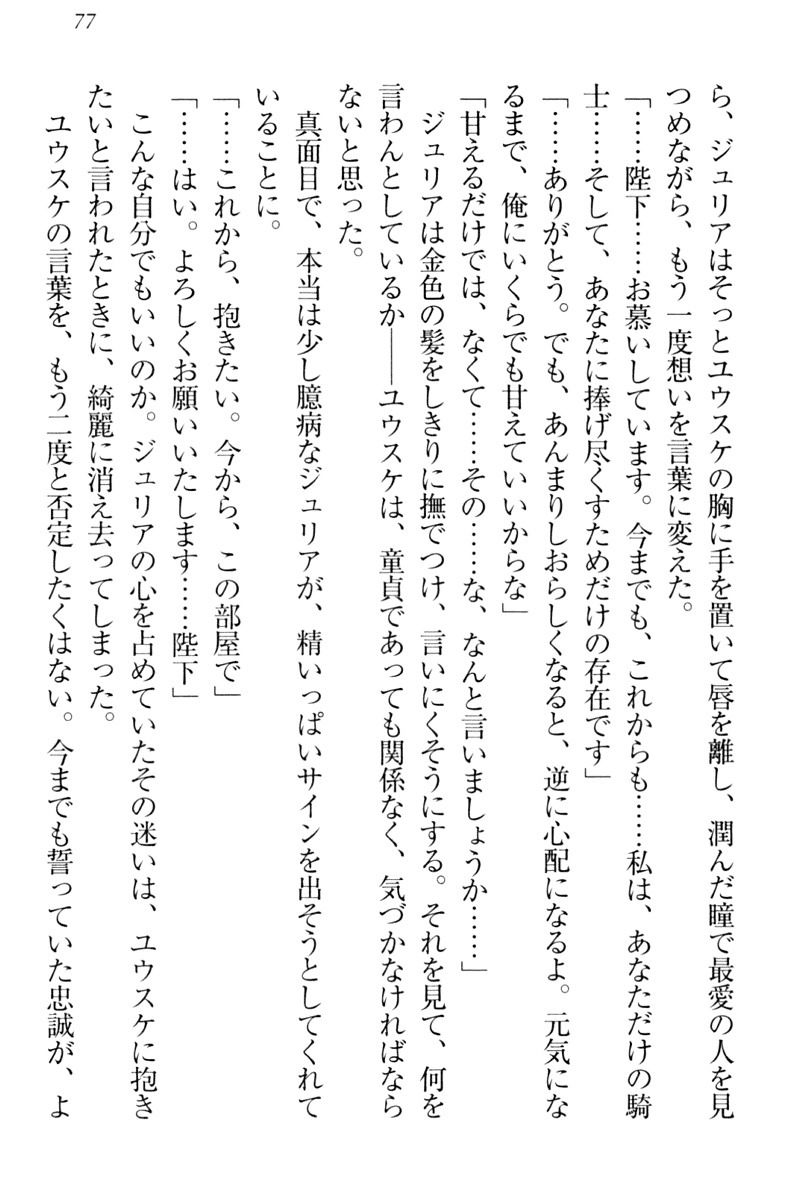 77
ら、ジュリアはそっとユウスケの胸に手を置いて唇を離し、潤んだ瞳で最愛の人を見
つめながら、もう一度想いを言葉に変えた。
「……陛下……お慕いしています。今までも、これからも……私は、あなただけの騎
士……そして、あなたに捧げ尽くすためだけの存在です」
「……ありがとう。でも、あんまりしおらしくなると、逆に心配になるよ。元気にな
るまで、俺にいくらでも甘えていいからな」
「甘えるだけでは、なくて……その……な、なんと言いましょうか……」
ジュリアは金色の髪をしきりに撫でつけ、言いにくそうにする。それを見て、何を
言わんとしているか――ユウスケは、童貞であっても関係なく、気づかなければなら
ないと思った。
真面目で、本当は少し臆病なジュリアが、精いっぱいサインを出そうとしてくれて
いることに。
「……これから、抱きたい。今から、この部屋で」
「……はい。よろしくお願いいたします……陛下」
こんな自分でもいいのか。ジュリアの心を占めていたその迷いは、ユウスケに抱き
たいと言われたときに、綺麗に消え去ってしまった。
ユウスケの言葉を、もう二度と否定したくはない。今までも誓っていた忠誠が、よ